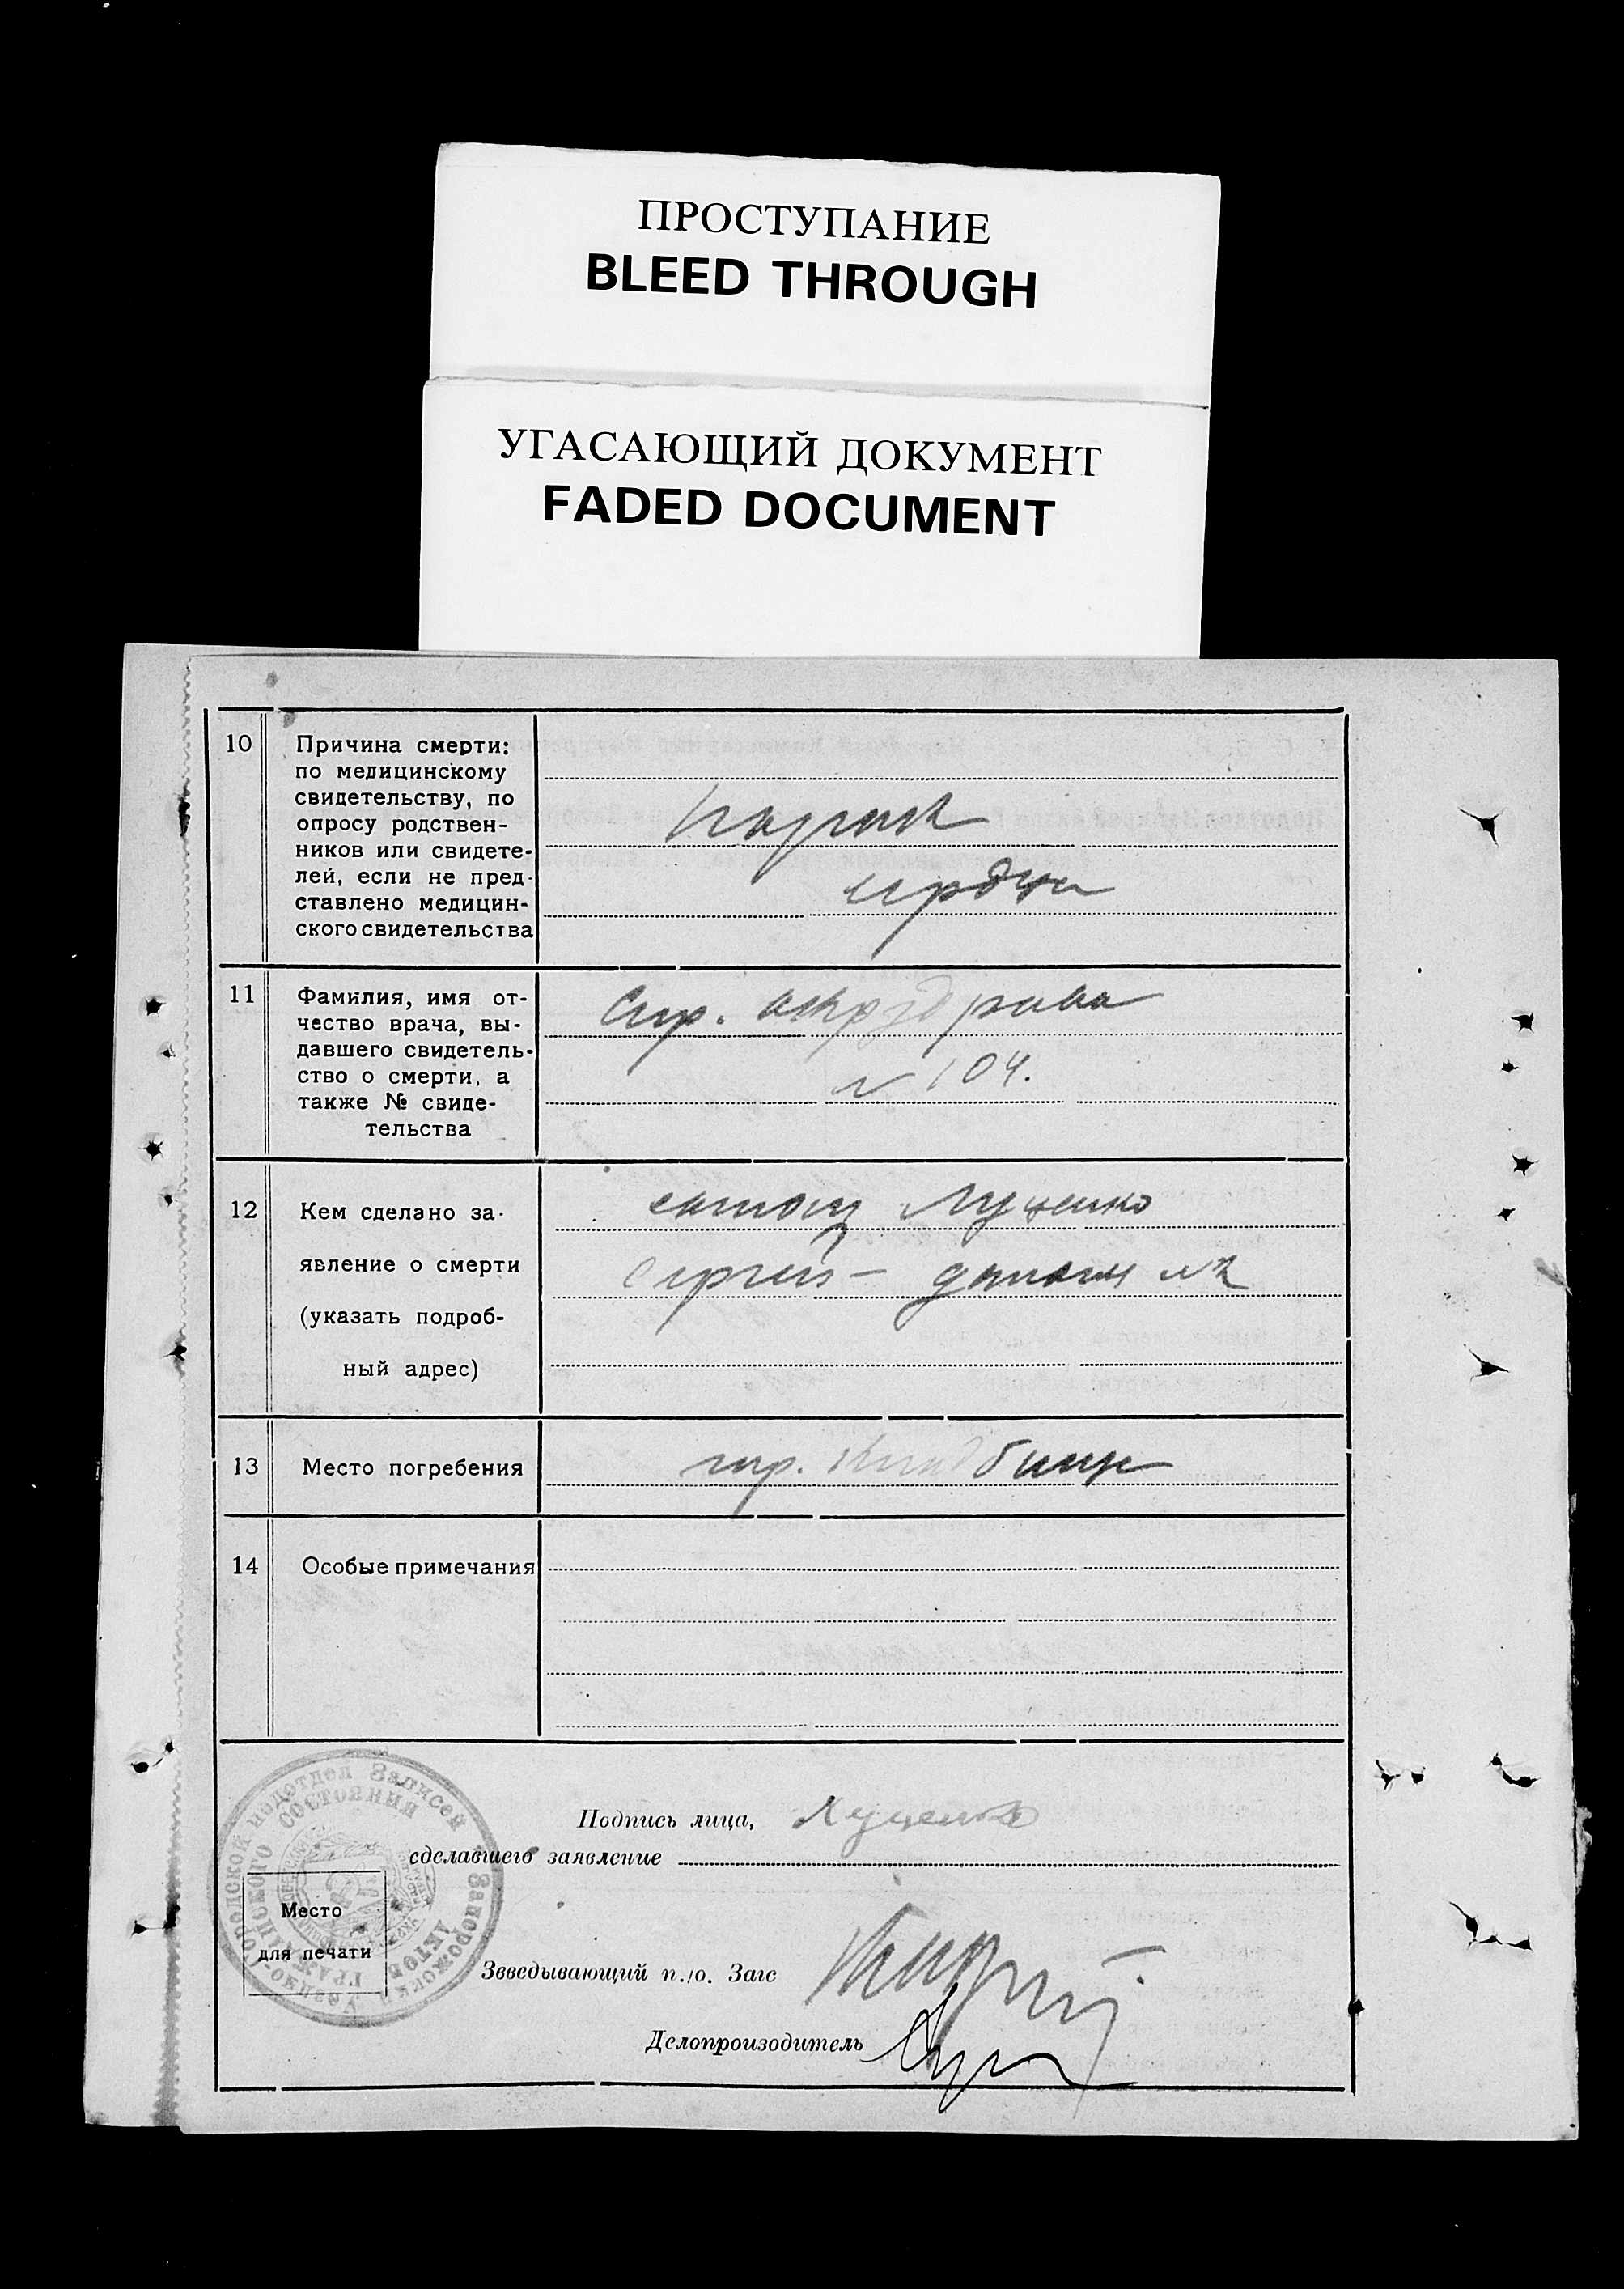 ПРОСТУПАНИЕ
BLEED THROUGH
УГАСАЮЩИЙ ДОКУМЕНТ
FADED DOCUMENT
10
Причина смерти:
по медицинскому
свидетельству, по
опросу родствен-
ников или свидете-
лей, если не пред-
ставлено медицин-
ского свидетельства
сердца
11
Фамилия, имя от-
чество врача, вы-
давшего свидетель-
ство о смерти, а
также № свиде-
тельства
Спр.
№ 104.
12
Кем сделано за-
явление о смерти
(указать подроб-
ный адрес)
Луценко
Сергей –
13
Место погребения
гор. кладбище
14
Особые примечания
Городской подотдел Записей
Актов ГРАЖДАНСКОГО СОСТОЯНИЯ
Место
для печати
Подпись лица,
сделавшего заявление
Луценко
Звведывающий п./о. Загс
Делопроизводитель